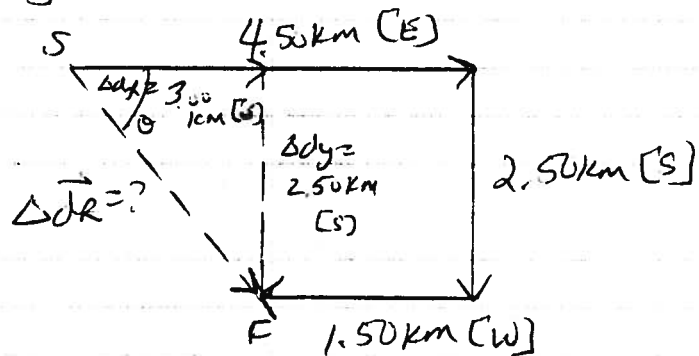 S
4.50km [E]
Δdx=
3.00
km [E]
θ
Δdy=
2.50km
[S]
2.50km [S]
ΔdR=?
F
1.50km [W]